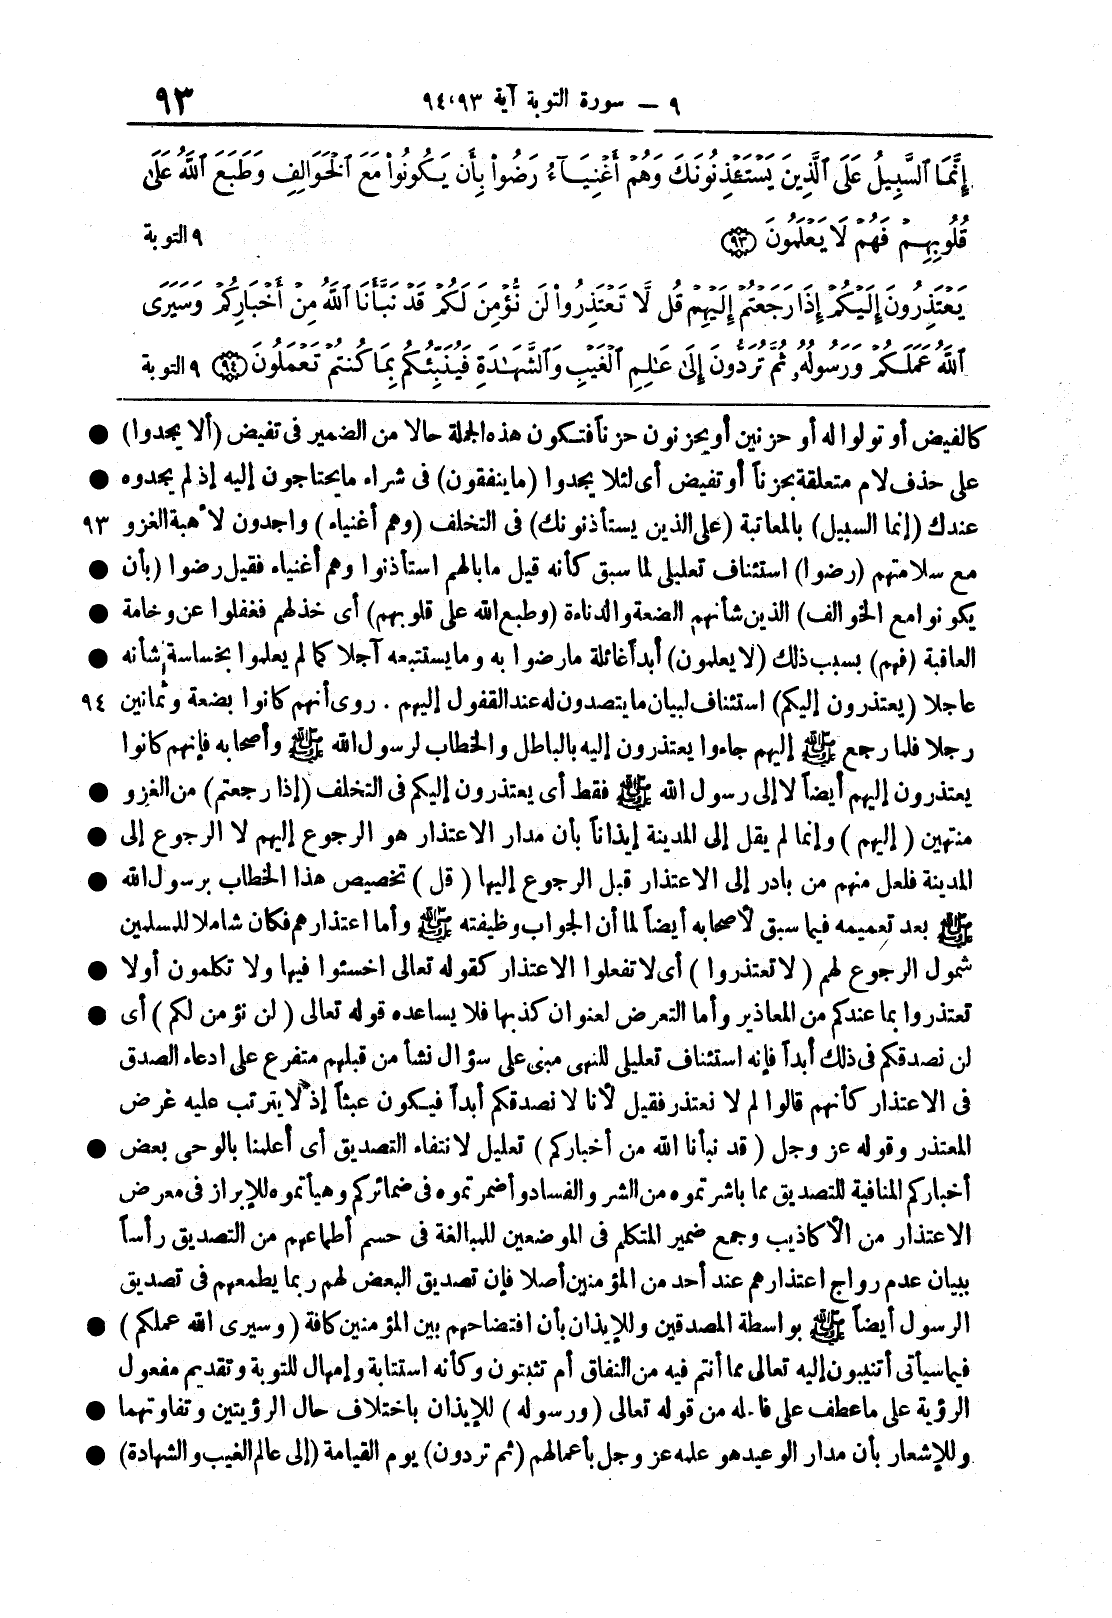 ٩ — سورة التوبة آية ٩٤،٩٣ ٩٣
إِنَّمَا ٱلسَّبِيلُ عَلَى ٱلَّذِينَ يَسْتَـْٔذِنُونَكَ وَهُمْ أَغْنِيَآءُ رَضُوا۟ بِأَن يَكُونُوا۟ مَعَ ٱلْخَوَالِفِ وَطَبَعَ ٱللَّهُ عَلَىٰ
قُلُوبِهِمْ فَهُمْ لَا يَعْلَمُونَ ٩٣ ٩ التوبة
يَعْتَذِرُونَ إِلَيْكُمْ إِذَا رَجَعْتُمْ إِلَيْهِمْ قُل لَّا تَعْتَذِرُوا۟ لَن نُّؤْمِنَ لَكُمْ قَدْ نَبَّأَنَا ٱللَّهُ مِنْ أَخْبَارِكُمْ وَسَيَرَى
ٱللَّهُ عَمَلَكُمْ وَرَسُولُهُۥ ثُمَّ تُرَدُّونَ إِلَىٰ عَـٰلِمِ ٱلْغَيْبِ وَٱلشَّهَـٰدَةِ فَيُنَبِّئُكُم بِمَا كُنتُمْ تَعْمَلُونَ ٩٤ ٩ التوبة
كالفيض أو تولوا له أو حزنين أو يحزنون حزناً فتكون هذه الجملة حالا من الضمير فى تفيض (ألا يجدوا) ●
على حذف لام متعلقة بحزناً أو تفيض أى لئلا يجدوا (ما ينفقون) فى شراء ما يحتاجون إليه إذ لم يجدوه ●
عندك (إنما السبيل) بالمعاتبة (على الذين يستأذنونك) فى التخلف (وهم أغنياء) واجدون لأهبة الغزو ٩٣
مع سلامتهم (رضوا) استئناف تعليلى لما سبق كأنه قيل ما بالهم استأذنوا وهم أغنياء فقيل رضوا (بأن ●
يكونوا مع الخوالف) الذين شأنهم الضعة والدناءة (وطبع الله على قلوبهم) أى خذلهم فغفلوا عن وخامة ●
العاقبة (فهم) بسبب ذلك (لا يعلمون) أبداً غائلة ما رضوا به وما يستتبعه آجلا كما لم يعلموا بخساسة شأنه ●
عاجلا (يعتذرون إليكم) استئناف لبيان ما يتصدون له عند القفول إليهم . روى أنهم كانوا بضعة وثمانين ٩٤
رجلا فلما رجع ﷺ إليهم جاءوا يعتذرون إليه بالباطل والخطاب لرسول الله ﷺ وأصحابه فإنهم كانوا
يعتذرون إليهم أيضاً لا إلى رسول الله ﷺ فقط أى يعتذرون إليكم فى التخلف (إذا رجعتم) من الغزو ●
منتهين (إليهم) وإنما لم يقل إلى المدينة إيذاناً بأن مدار الاعتذار هو الرجوع إليهم لا الرجوع إلى ●
المدينة فلعل منهم من بادر إلى الاعتذار قبل الرجوع إليها (قل) تخصيص هذا الخطاب برسول الله ●
ﷺ بعد تعميمه فيما سبق لأصحابه أيضاً لما أن الجواب وظيفته ﷺ وأما اعتذارهم فكان شاملا للمسلمين
شمول الرجوع لهم (لا تعتذروا) أى لا تفعلوا الاعتذار كقوله تعالى اخسئوا فيها ولا تكلمون أو لا ●
تعتذروا بما عندكم من المعاذير وأما التعرض لعنوان كذبها فلا يساعده قوله تعالى (لن نؤمن لكم) أى ●
لن نصدقكم فى ذلك أبداً فإنه استئناف تعليلى للنهى مبنى على سؤال نشأ من قبلهم متفرع على ادعاء الصدق
فى الاعتذار كأنهم قالوا لم لا نعتذر فقيل لأنا لا نصدقكم أبداً فيكون عبثاً إذ لا يترتب عليه غرض
المعتذر وقوله عز وجل (قد نبأنا الله من أخباركم) تعليل لانتفاء التصديق أى أعلمنا بالوحى بعض ●
أخباركم المنافية للتصديق مما باشرتموه من الشر والفساد وأضمرتموه فى ضمائركم وهيأتموه للإبراز فى معرض
الاعتذار من الأكاذيب وجمع ضمير المتكلم فى الموضعين للمبالغة فى حسم أطماعهم من التصديق رأساً
ببيان عدم رواج اعتذارهم عند أحد من المؤمنين أصلا فإن تصديق البعض لهم ربما يطمعهم فى تصديق
الرسول أيضاً ﷺ بواسطة المصدقين وللإيذان بأن افتضاحهم بين المؤمنين كافة (وسيرى الله عملكم) ●
فيما سيأتى أتنيبون إليه تعالى مما أنتم فيه من النفاق أم تثبتون وكأنه استتابة وإمهال للتوبة وتقديم مفعول
الرؤية على ما عطف على فاعله من قوله تعالى (ورسوله) للإيذان باختلاف حال الرؤيتين وتفاوتهما ●
وللإشعار بأن مدار الوعيد هو علمه عز وجل بأعمالهم (ثم تردون) يوم القيامة (إلى عالم الغيب والشهادة) ●